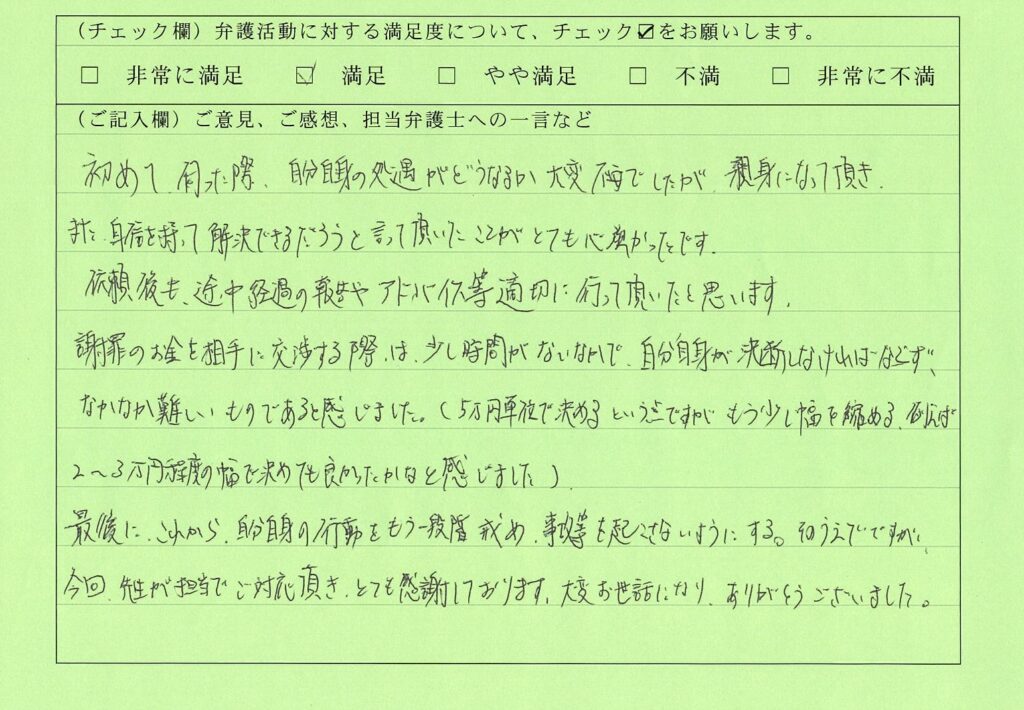 （チェック欄）弁護活動に対する満足度について、チェック☑をお願いします。
□ 非常に満足 ☑ 満足 □ やや満足 □ 不満 □ 非常に不満
（ご記入欄）ご意見、ご感想、担当弁護士への一言など
初めて伺った際、自分自身の処遇がどうなるか大変不安でしたが、親身になって頂き、
また、自信を持って解決できるだろうと言って頂いたことがとても心強かったです。
依頼後も、途中経過の報告やアドバイス等適切に行って頂いたと思います。
謝罪のお金を相手に交渉する際は、少し時間がないなかで、自分自身が決断しなければならず、
なかなか難しいものであると感じました。（5万円単位で決めるという点ですがもう少し幅を縮める、例えば
2～3万円程度の幅で決めても良かったかなと感じました）
最後に、これから、自分自身の行動をもう一段階戒め、事故等を起こさないようにする。そのうえでですが、
今回、先生が担当でご対応頂き、とても感謝しております。大変お世話になり、ありがとうございました。